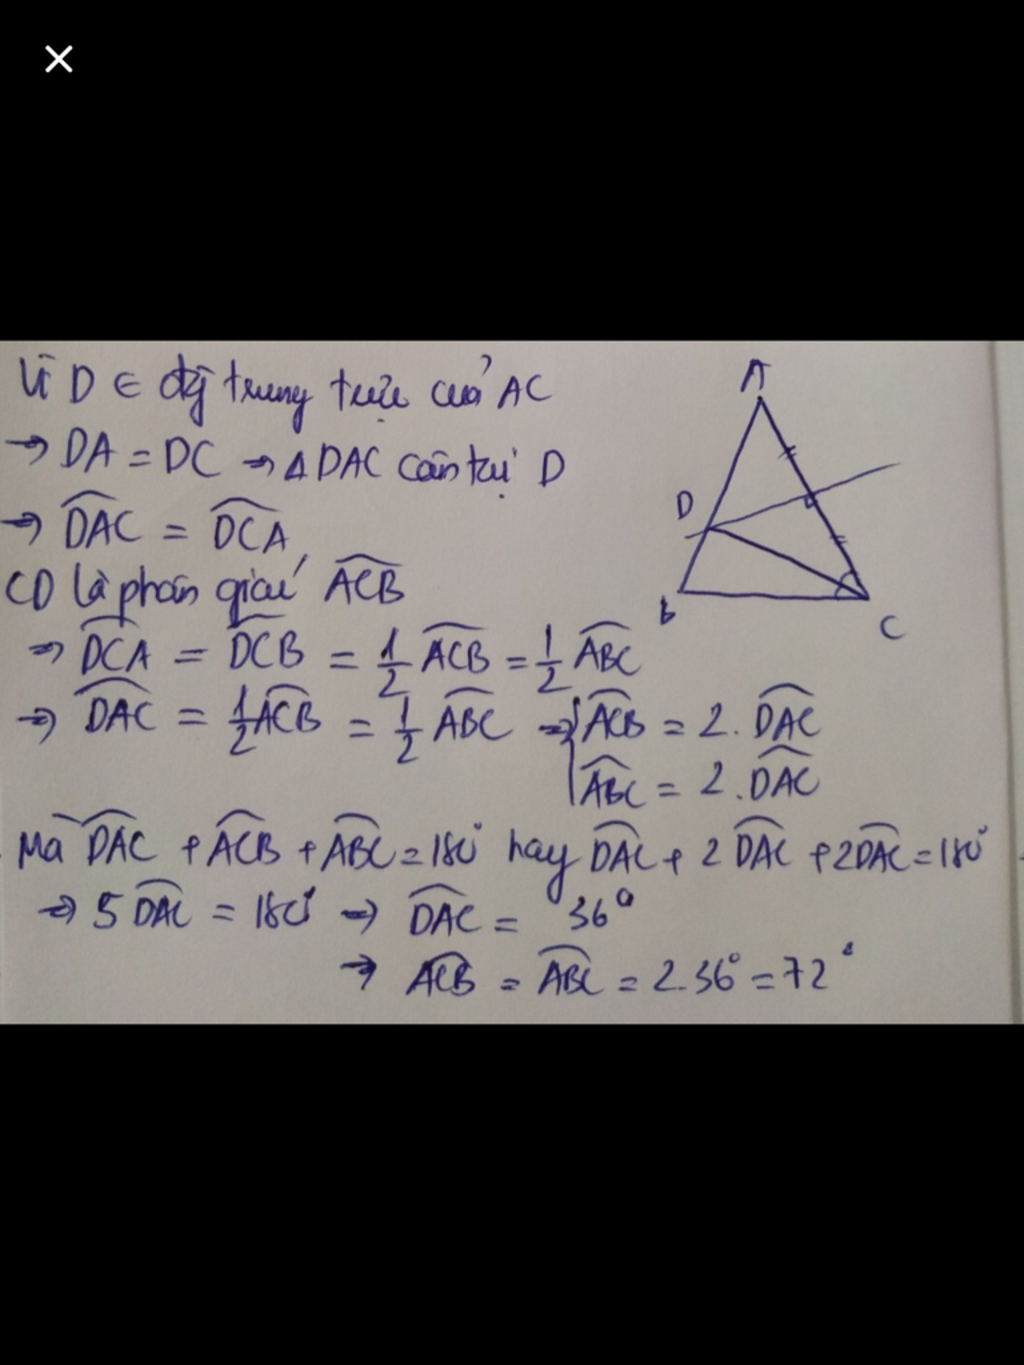 Vì D ∈ đg trung trực của AC
→ DA = DC → Δ DAC cân tại D
→ \widehat{DAC} = \widehat{DCA}
CD là phân giác \widehat{ACB}
→ \widehat{DCA} = \widehat{DCB} = \frac{1}{2} \widehat{ACB} = \frac{1}{2} \widehat{ABC}
→ \widehat{DAC} = \frac{1}{2} \widehat{ACB} = \frac{1}{2} \widehat{ABC} → { \widehat{ACB} = 2. \widehat{DAC}
\widehat{ABC} = 2. \widehat{DAC}
Mà \widehat{DAC} + \widehat{ACB} + \widehat{ABC} = 180° hay \widehat{DAC} + 2 \widehat{DAC} + 2 \widehat{DAC} = 180°
→ 5 \widehat{DAC} = 180° → \widehat{DAC} = 36°
→ \widehat{ACB} = \widehat{ABC} = 2.36° = 72°
A
D
B
C